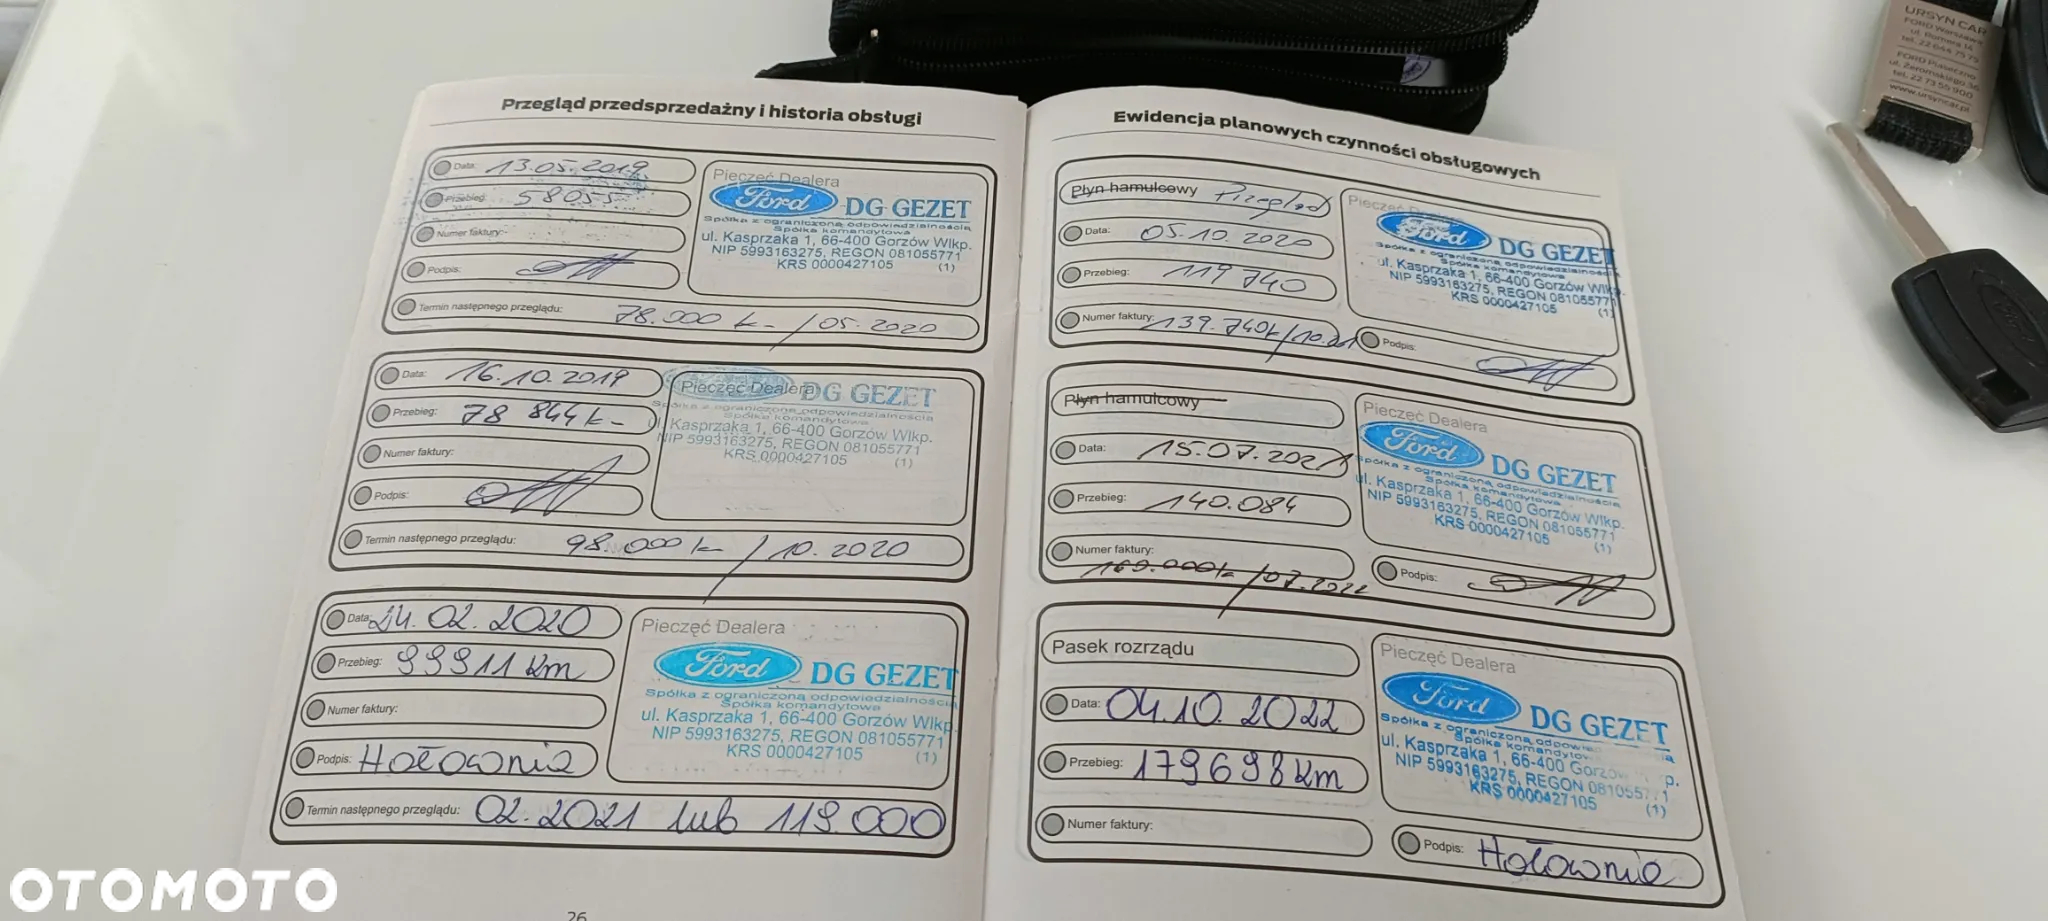 Przegląd przedsprzedażny i historia obsługi
Data: 13.05.2019
Przebieg: 58055
Numer faktury:
Podpis:
Termin następnego przeglądu: 78.000 k- / 05.2020
Pieczęć Dealera
Ford DG GEZET
Spółka z ograniczoną odpowiedzialnością
Spółka komandytowa
ul. Kasprzaka 1, 66-400 Gorzów Wlkp.
NIP 5993163275, REGON 081055771
KRS 0000427105 (1)
Data: 16.10.2019
Przebieg: 78 844 k-
Numer faktury:
Podpis:
Termin następnego przeglądu: 98.000 k- / 10.2020
Pieczęć Dealera
DG GEZET
Spółka z ograniczoną odpowiedzialnością
Spółka komandytowa
ul. Kasprzaka 1, 66-400 Gorzów Wlkp.
NIP 5993163275, REGON 081055771
KRS 0000427105 (1)
Data: 24.02.2020
Przebieg: 99911 km
Numer faktury:
Podpis: Hołownia
Termin następnego przeglądu: 02.2021 lub 119.000
Pieczęć Dealera
Ford DG GEZET
Spółka z ograniczoną odpowiedzialnością
Spółka komandytowa
ul. Kasprzaka 1, 66-400 Gorzów Wlkp.
NIP 5993163275, REGON 081055771
KRS 0000427105 (1)
26
Ewidencja planowych czynności obsługowych
Płyn hamulcowy Przegląd
Data: 05.10.2020
Przebieg: 119 740
Numer faktury: 139.740k/10.
Podpis:
Pieczęć Dealera
Ford DG GEZET
Spółka z ograniczoną odpowiedzialnością
Spółka komandytowa
ul. Kasprzaka 1, 66-400 Gorzów Wlkp.
NIP 5993163275, REGON 081055771
KRS 0000427105 (1)
Płyn hamulcowy
Data: 15.07.2021
Przebieg: 140.084
Numer faktury:
160.000k /07.2022
Podpis:
Pieczęć Dealera
Ford DG GEZET
Spółka z ograniczoną odpowiedzialnością
Spółka komandytowa
ul. Kasprzaka 1, 66-400 Gorzów Wlkp.
NIP 5993163275, REGON 081055771
KRS 0000427105 (1)
Pasek rozrządu
Data: 04.10.2022
Przebieg: 179698 km
Numer faktury:
Podpis: Hołownia
Pieczęć Dealera
Ford DG GEZET
Spółka z ograniczoną
Spółka komandytowa
ul. Kasprzaka 1, 66-400
NIP 5993163275, REGON
KRS 0000427105 (1)
URSYN CAR
FORD Warszawa
ul. Romera 14
tel. 22 644 75 75
FORD Piaseczno
ul. Żeromskiego 36
tel. 22 73 55 900
www.ursyncar.pl
OTOMOTO